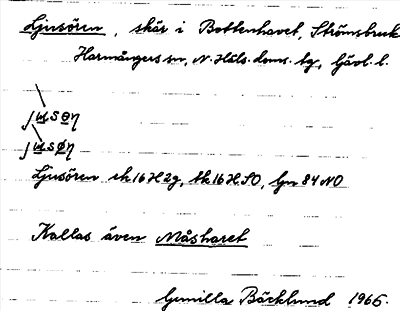 Ljusören, skär i Bottenhavet, Strömsbruk
Harmångers sn, N. Häls. doms. tg, Gävl. l.
jusøη
Ljusören ek 16H2g, tk 16H SO, Gn 84 NO
Kallas även Måsharet
Gunilla Bäcklund 1966.